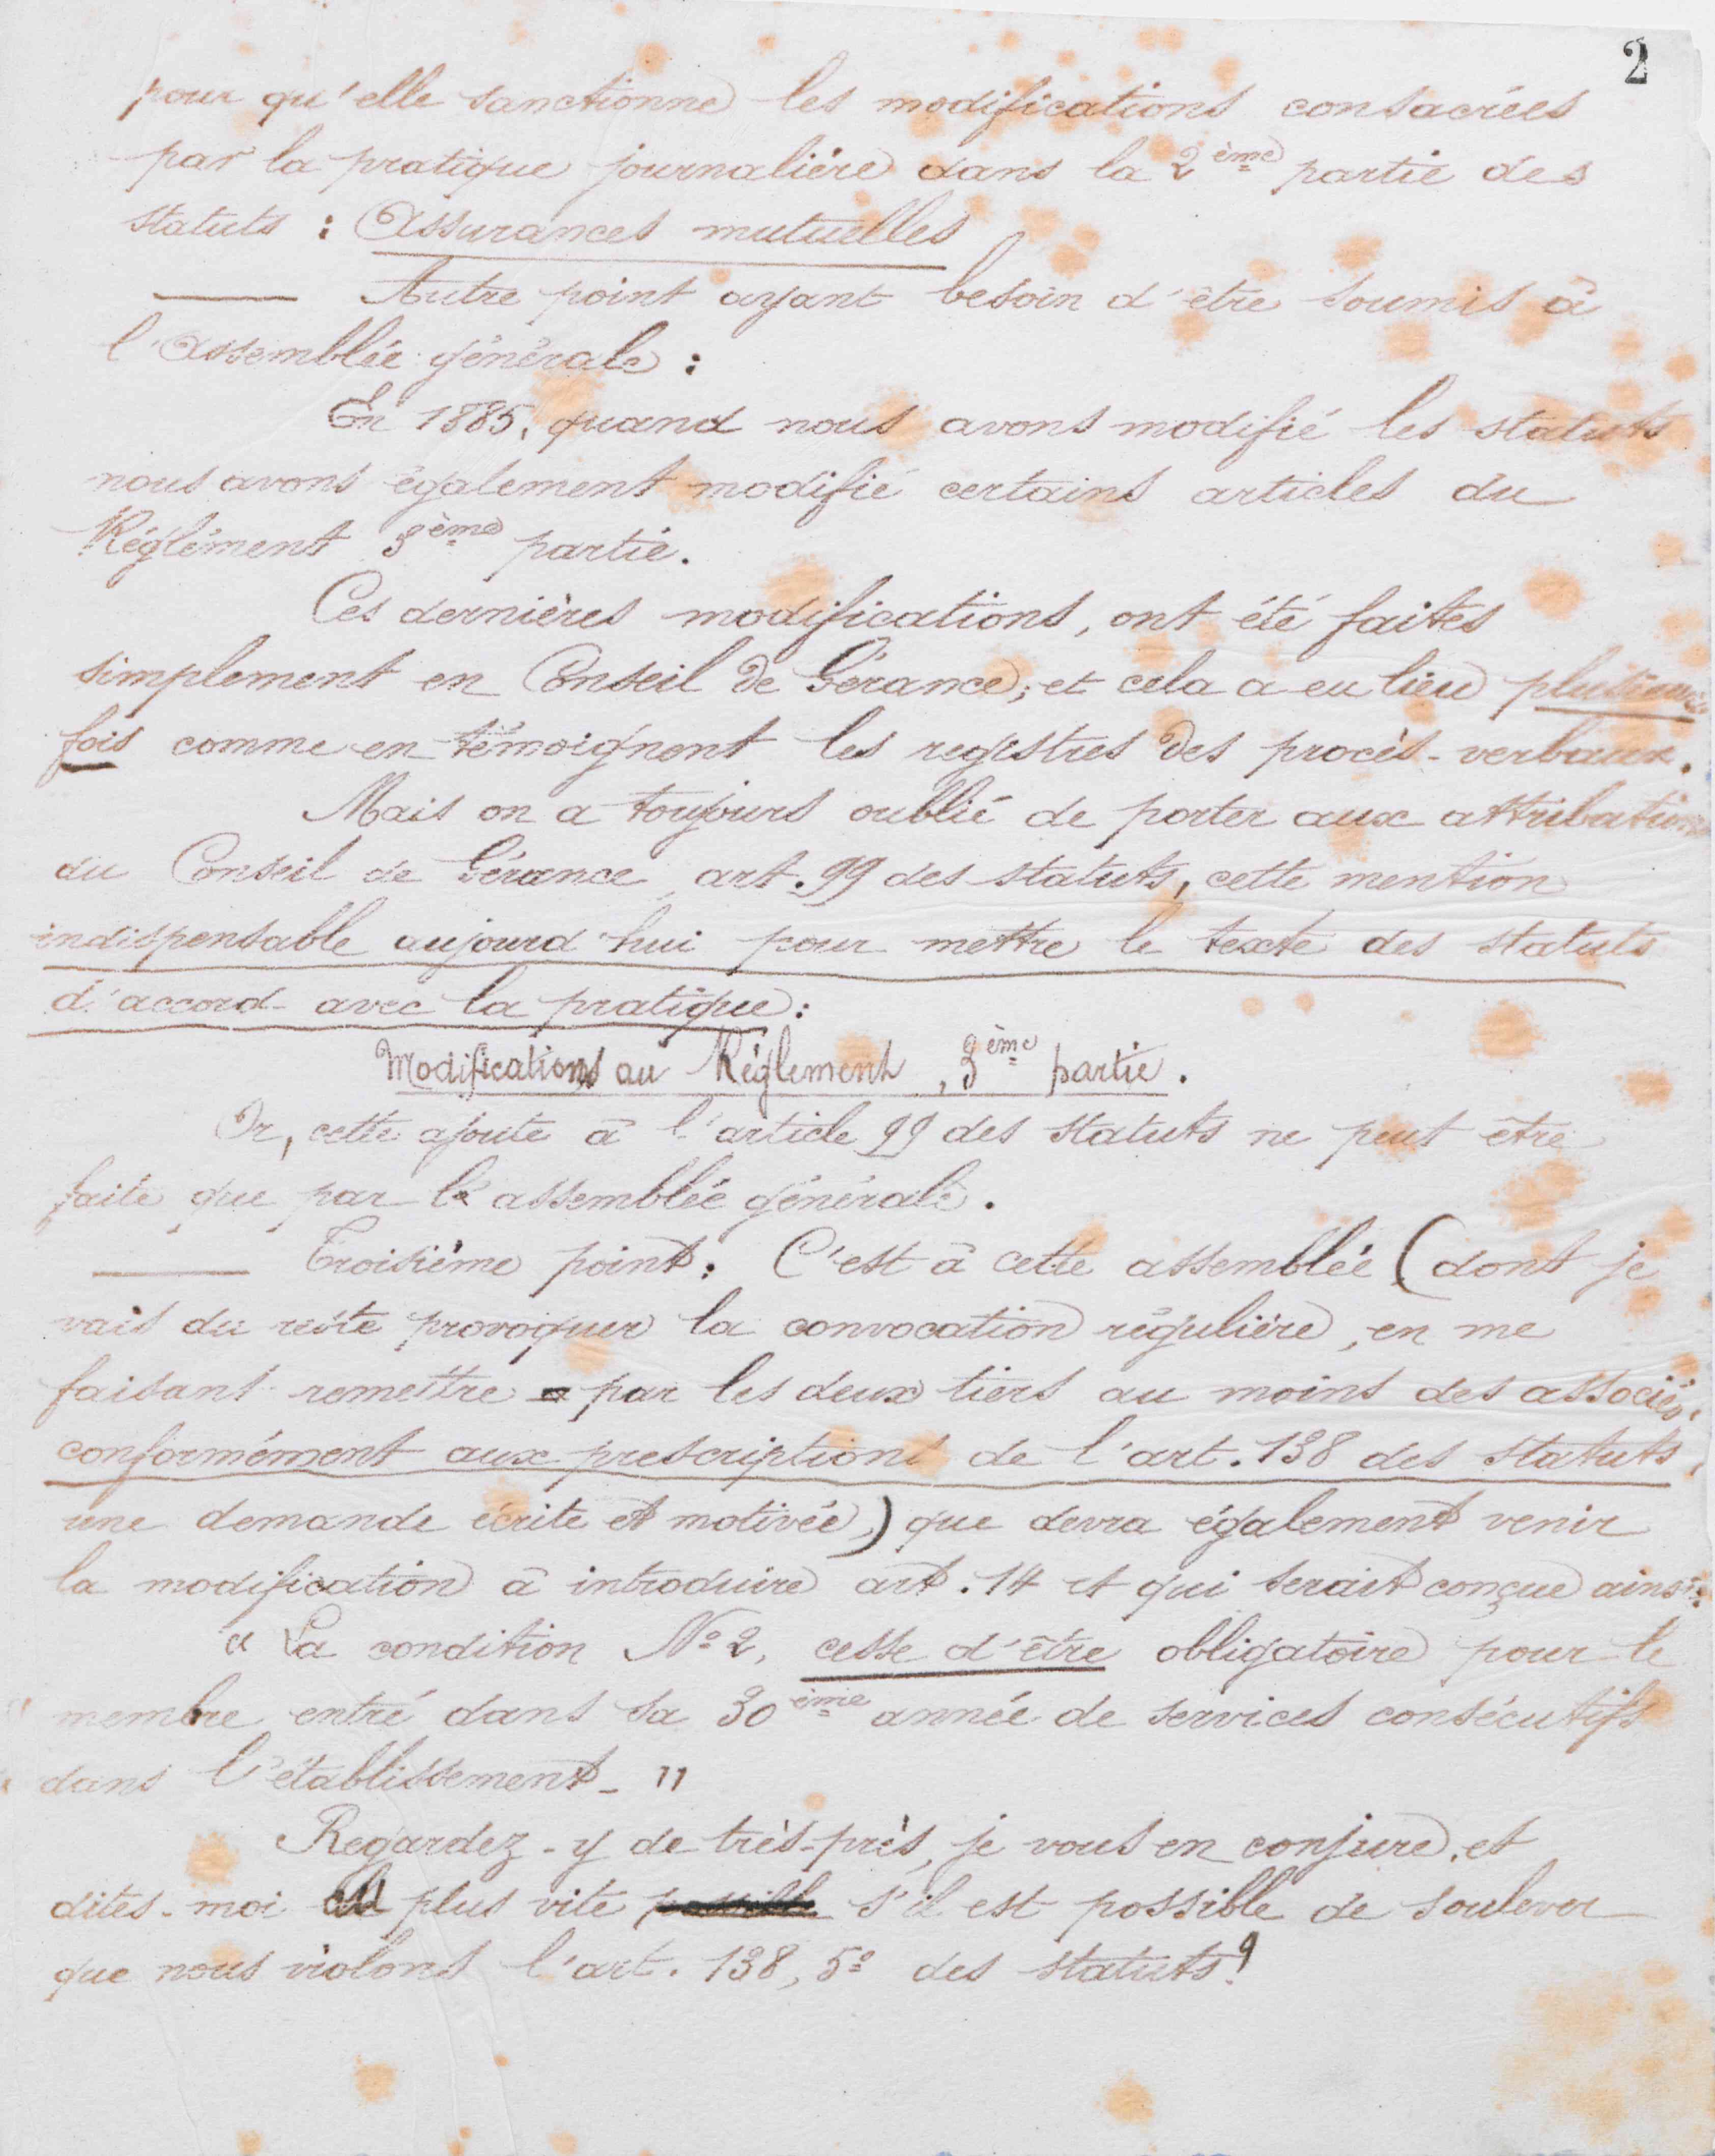 2
pour qu'elle sanctionne les modifications consacrées
par la pratique journalière dans la 2ème partie des
statuts : Assurances mutuelles
— Autre point ayant besoin d'être soumis à
l'Assemblée générale :
En 1885, quand nous avons modifié les statuts
nous avons également modifié certains articles du
Réglement 3ème partie.
Ces dernières modifications, ont été faites
simplement en Conseil de Gérance; et cela a eu lieu plusieurs
fois comme en témoignent les registres des procès-verbaux.
Mais on a toujours oublié de porter aux attributions
du Conseil de Gérance, art. 99 des statuts, cette mention
indispensable aujourd'hui pour mettre le texte des statuts
d'accord avec la pratique :
Modifications au Réglement, 3ème partie.
Or, cette ajoute à l'article 99 des statuts ne peut être
faite que par l'assemblée générale.
— Troisième point : C'est à cette assemblée (dont je
vais du reste provoquer la convocation régulière, en me
faisant remettre par les deux tiers au moins des associés,
conformément aux prescriptions de l'art. 138 des statuts,
une demande écrite et motivée) que devra également venir
la modification à introduire art. 14 et qui serait conçue ainsi :
" La condition No 2, cesse d'être obligatoire pour le
" membre entré dans sa 30ème année de services consécutifs
" dans l'établissement - "
Regardez-y de très-près, je vous en conjure, et
dites-moi au plus vite s'il est possible de soulever
que nous violons l'art. 138, 5º des statuts ?